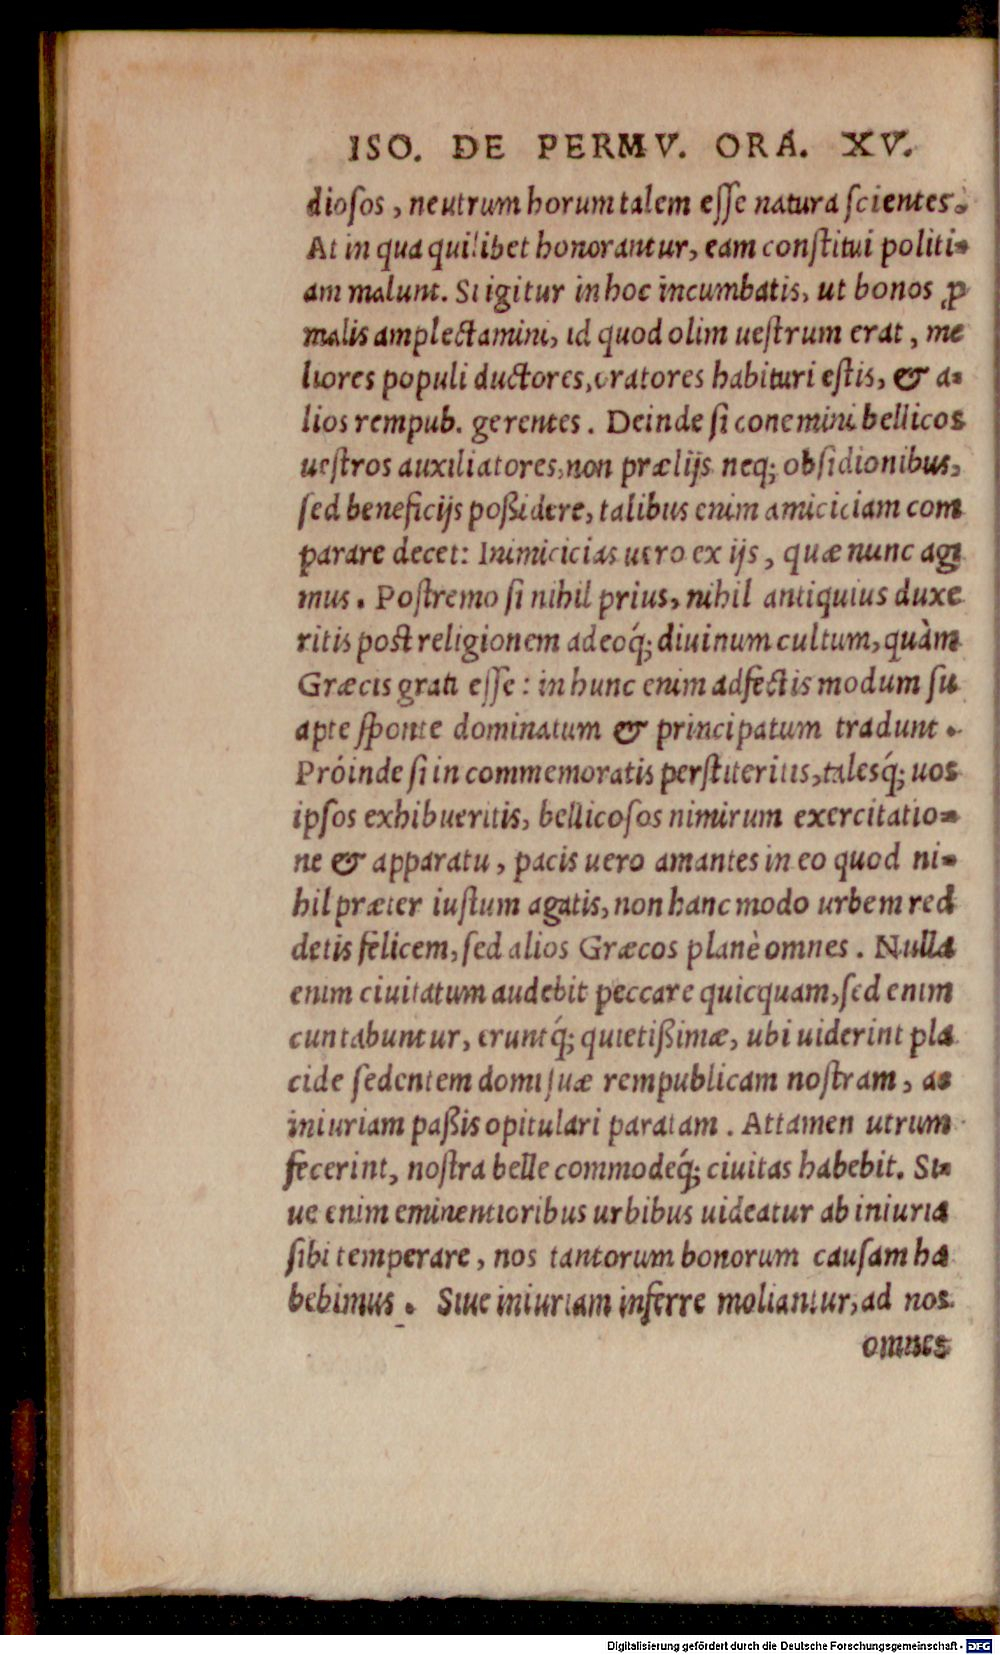 ISO. DE PERMV. ORA. XV.
dioſos, neutrum horum talem eſſe natura ſcientes.
At in qua quilibet honorantur, eam conſtitui politi-
am malunt. Si igitur in hoc incumbatis, ut bonos ꝓ
malis amplectamini, id quod olim ueſtrum erat, me
liores populi ductores, oratores habituri eſtis, & a-
lios rempub. gerentes. Deinde ſi conemini bellicos
ueſtros auxiliatores, non prælijs neq; obſidionibus,
ſed beneficijs poßidere, talibus enim amiciciam com
parare decet: Inimicicias uero ex ijs, quæ nunc agi
mus. Poſtremo ſi nihil prius, nihil antiquius duxe
ritis poſt religionem adeoq́; diuinum cultum, quàm
Græcis grati eſſe: in hunc enim adfectis modum ſu
apte ſponte dominatum & principatum tradunt.
Próinde ſi in commemoratis perſtiteritis, talesq́; uos
ipſos exhibueritis, bellicoſos nimirum exercitatio-
ne & apparatu, pacis uero amantes in eo quod ni-
hil præter iuſtum agatis, non hanc modo urbem red
detis felicem, ſed alios Græcos planè omnes. Nulla
enim ciuitatum audebit peccare quicquam, ſed enim
cuntabuntur, eruntq́; quietißimæ, ubi uiderint pla
cide ſedentem domi ſuæ rempublicam noſtram, ac
iniuriam paßis opitulari paratam. Attamen utrum
fecerint, noſtra belle commodeq́; ciuitas habebit. Si-
ue enim eminentioribus urbibus uideatur ab iniuria
ſibi temperare, nos tantorum bonorum cauſam ha
bebimus. Siue iniuriam inferre moliantur, ad nos
omnes
Digitalisierung gefördert durch die Deutsche Forschungsgemeinschaft - DFG